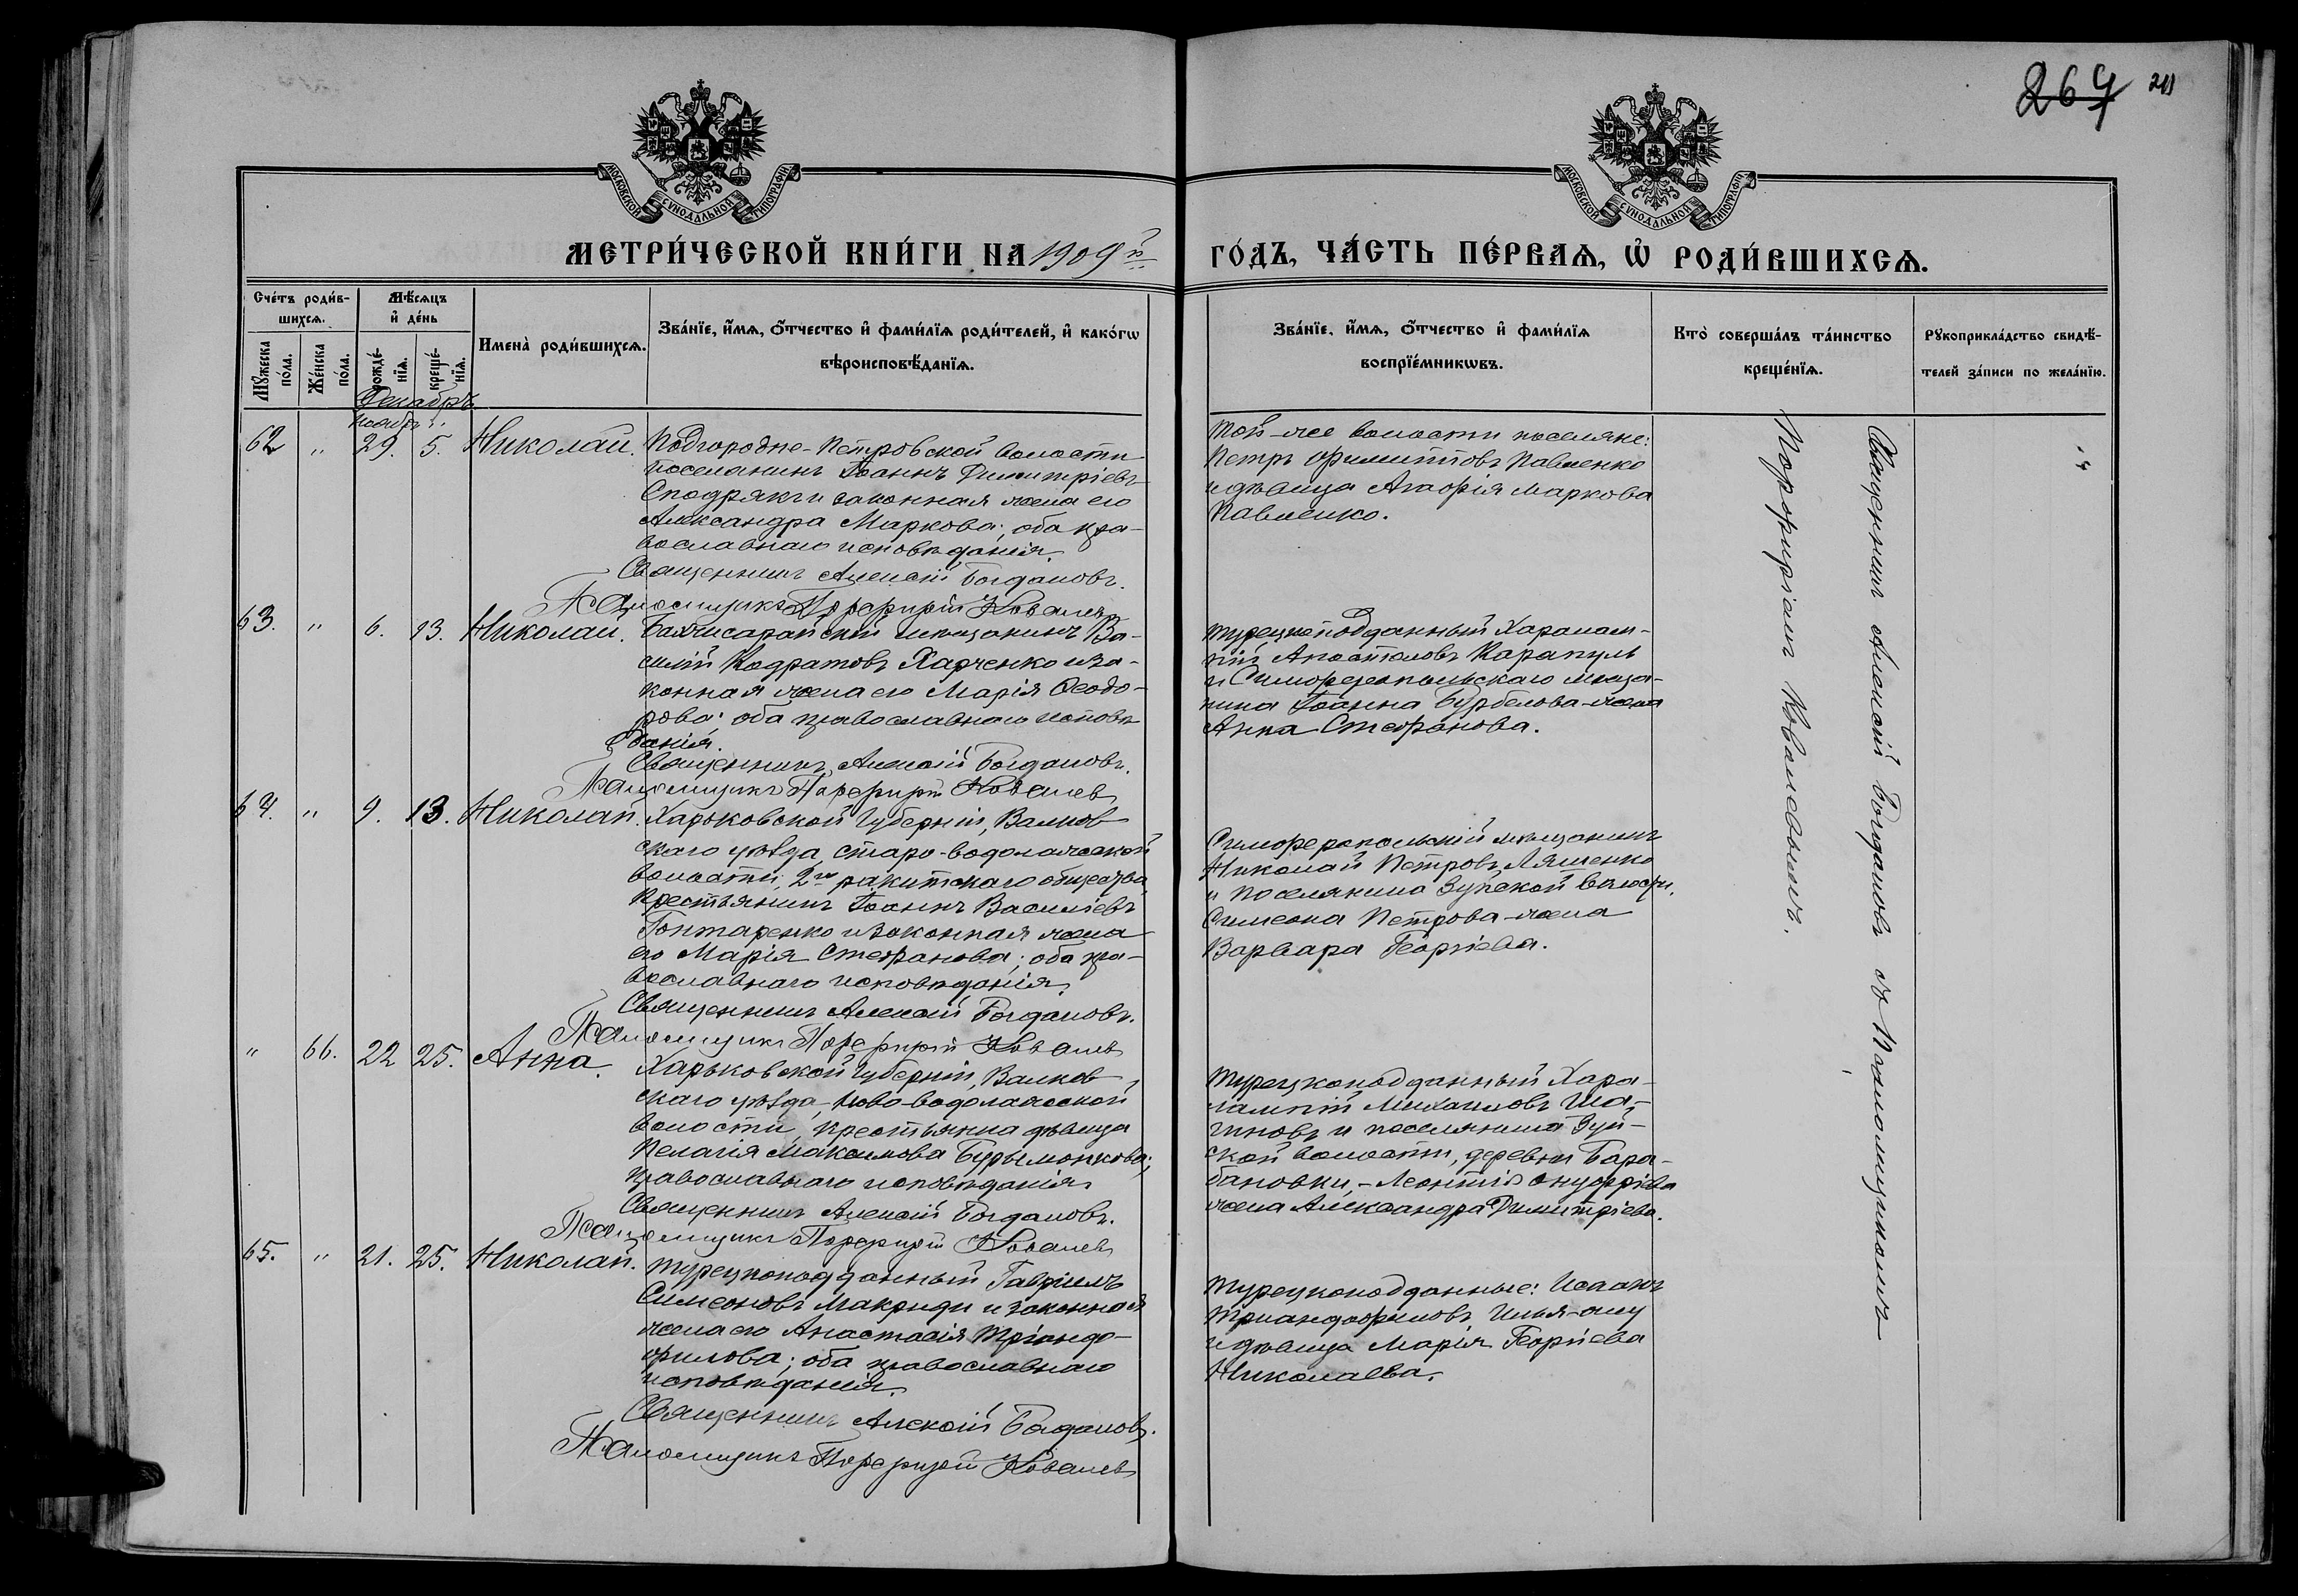 264 211
МОСКОВСКОЙ СѴНОДАЛЬНОЙ ТИПОГРАФІИ
МОСКОВСКОЙ СѴНОДАЛЬНОЙ ТИПОГРАФІИ
МЕТРИ́ЧЕСКОЙ КНИ́ГИ НА 1909й
ГО́ДЪ, ЧА́СТЬ ПЕ́РВАѦ, Ѡ҆ РОДИ́ВШИХСѦ.
Сче́тъ роди́в-
шихсѧ.
Мѣ́сѧцъ
и҆ де́нь
Мꙋ́жеска
по́ла.
Же́нска
по́ла.
рожде́-
нїѧ.
креще́-
нїѧ.
Имена̀ роди́вшихсѧ.
Зва́нїе, и҆́мѧ, ѻ҆́тчество и҆ фами́лїѧ роди́телей, и҆ како́гѡ
вѣроисповѣ́данїѧ.
Зва́нїе, и҆́мѧ, ѻ҆́тчество и҆ фами́лїѧ
воспрїе́мникѡвъ.
Кто̀ соверша́лъ та́инство
креще́нїѧ.
Рꙋкоприкла́дство свидѣ́-
телей за́писи по жела́нїю.
Декабрь
Ноябрь
62 " 29. 5. Николай.
Подгородне-Петровской волости
поселянинъ Іоаннъ Димитріевъ
Сподрякъ и законная жена его
Александра Маркова; оба пра-
вославнаго исповѣданія.
Священникъ Алексій Богдановъ.
Псаломщикъ Порфирій Ковалевъ
Той-же волости поселяне:
Петръ Филипповъ Павленко
и дѣвица Агафія Маркова
Павленко.
63. " 6. 13. Николай.
Бахчисарайскій мѣщанинъ Ва-
силій Кодратовъ Харченко и за-
конная жена его Марія Ѳеодо-
рова; оба православнаго исповѣ
данія.
Священникъ Алексій Богдановъ.
Псаломщикъ Порфирій Ковалевъ
Турецкоподданный Харалам-
пій Апостоловъ Карапулъ
и Симферопольскаго мѣща-
нина Іоанна Бурбелова-жена
Анна Стефанова.
64. " 9. 13. Николай.
Харьковской губерніи, Валков
скаго уѣзда, Старо-водолажской
волости, 2го ракитскаго общества
крестьянинъ Іоаннъ Василіевъ
Гонтаренко и законная жена
его Марія Стефанова; оба пра-
вославнаго исповѣданія.
Священникъ Алексій Богдановъ.
Псаломщикъ Порфирій Ковалевъ
Симферопольскій мѣщанинъ
Николай Петровъ Ляшенко
и поселянина Зуйской волости,
Симеона Петрова-жена
Варвара Георгіева.
" 66. 22 25. Анна.
Харьковской губерніи, Валков
скаго уѣзда, Ново-водолажской
волости, крестьянка дѣвица
Пелагія Максимова Бурымонкова;
православнаго исповѣданія
Священникъ Алексій Богдановъ.
Псаломщикъ Порфирій Ковалевъ
Турецкоподданный Хара-
лампій Михаиловъ Ша-
гиновъ и поселянина Зуй-
ской волости, деревни Бара-
бановки, - Леонтія Онуфріева
жена Александра Димитріева.
65. " 21. 25. Николай.
Турецкоподданный Гавріилъ
Симеоновъ Макриди и законная
жена его Анастасія Тріанда-
филова; оба православнаго
исповѣданія.
Священникъ Алексій Богдановъ.
Псаломщикъ Порфирій Ковалевъ
Турецкоподданные: Исаакъ
Триандафиловъ
и дѣвица Марія Георгіева
Николаева.
Священникъ Алексій Богдановъ съ Псаломщикомъ
Порфиріемъ Ковалевымъ.